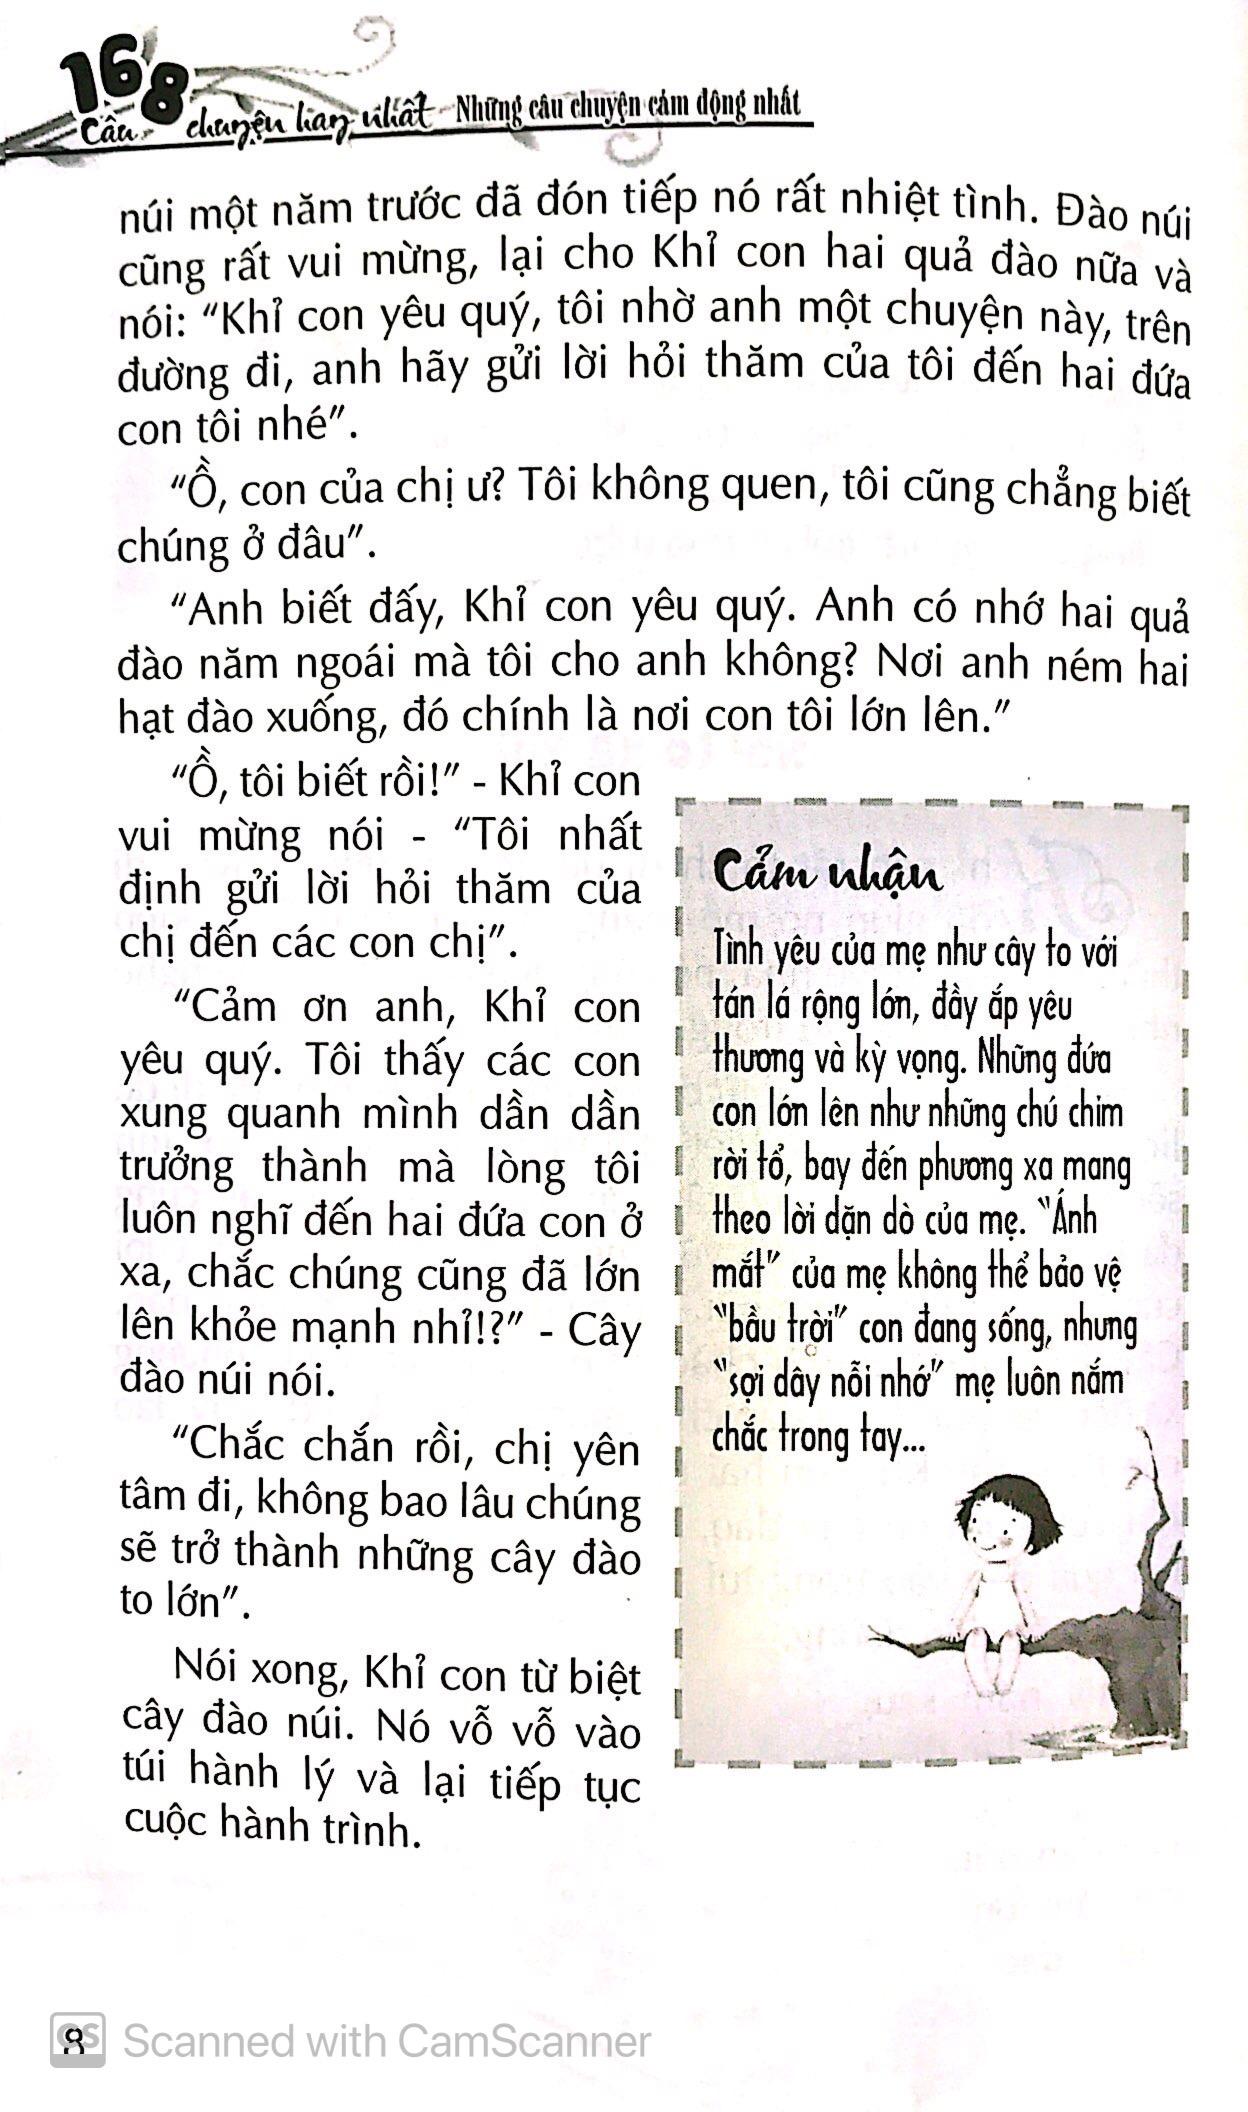 168
Câu chuyện hay nhất - Những câu chuyện cảm động nhất
núi một năm trước đã đón tiếp nó rất nhiệt tình. Đào núi
cũng rất vui mừng, lại cho Khỉ con hai quả đào nữa và
nói: “Khỉ con yêu quý, tôi nhờ anh một chuyện này, trên
đường đi, anh hãy gửi lời hỏi thăm của tôi đến hai đứa
con tôi nhé”.
“Ồ, con của chị ư? Tôi không quen, tôi cũng chẳng biết
chúng ở đâu”.
“Anh biết đấy, Khỉ con yêu quý. Anh có nhớ hai quả
đào năm ngoái mà tôi cho anh không? Nơi anh ném hai
hạt đào xuống, đó chính là nơi con tôi lớn lên.”
“Ồ, tôi biết rồi!” - Khỉ con
vui mừng nói - “Tôi nhất
định gửi lời hỏi thăm của
chị đến các con chị”.
“Cảm ơn anh, Khỉ con
yêu quý. Tôi thấy các con
xung quanh mình dần dần
trưởng thành mà lòng tôi
luôn nghĩ đến hai đứa con ở
xa, chắc chúng cũng đã lớn
lên khỏe mạnh nhỉ!?” - Cây
đào núi nói.
“Chắc chắn rồi, chị yên
tâm đi, không bao lâu chúng
sẽ trở thành những cây đào
to lớn”.
Nói xong, Khỉ con từ biệt
cây đào núi. Nó vỗ vỗ vào
túi hành lý và lại tiếp tục
cuộc hành trình.
Cảm nhận
Tình yêu của mẹ như cây to với
tán lá rộng lớn, đầy ắp yêu
thương và kỳ vọng. Những đứa
con lớn lên như những chú chim
rời tổ, bay đến phương xa mang
theo lời dặn dò của mẹ. “Ánh
mắt” của mẹ không thể bảo vệ
“bầu trời” con đang sống, nhưng
“sợi dây nỗi nhớ” mẹ luôn nắm
chắc trong tay...
8
CS Scanned with CamScanner